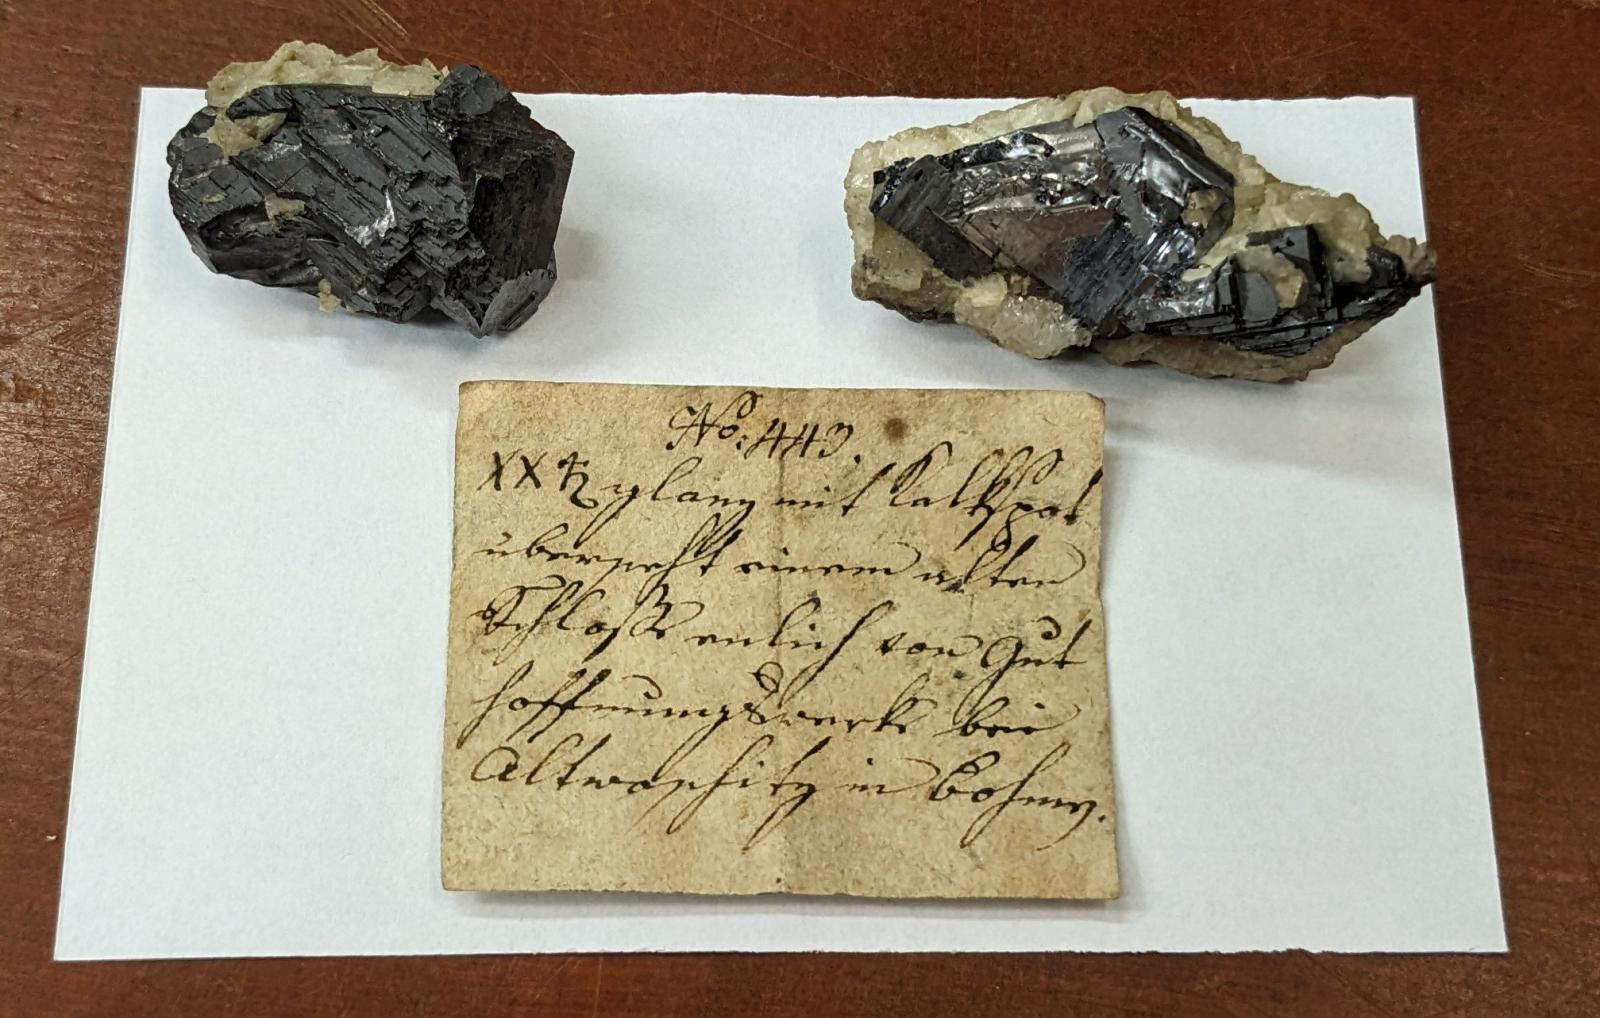 No: 443.
XX ♄ glanz mit Kalkspat
überseht einem alten
Schloße enlich von Gut
hoffnungswerke bei
Altwoschitz in Bohmen.